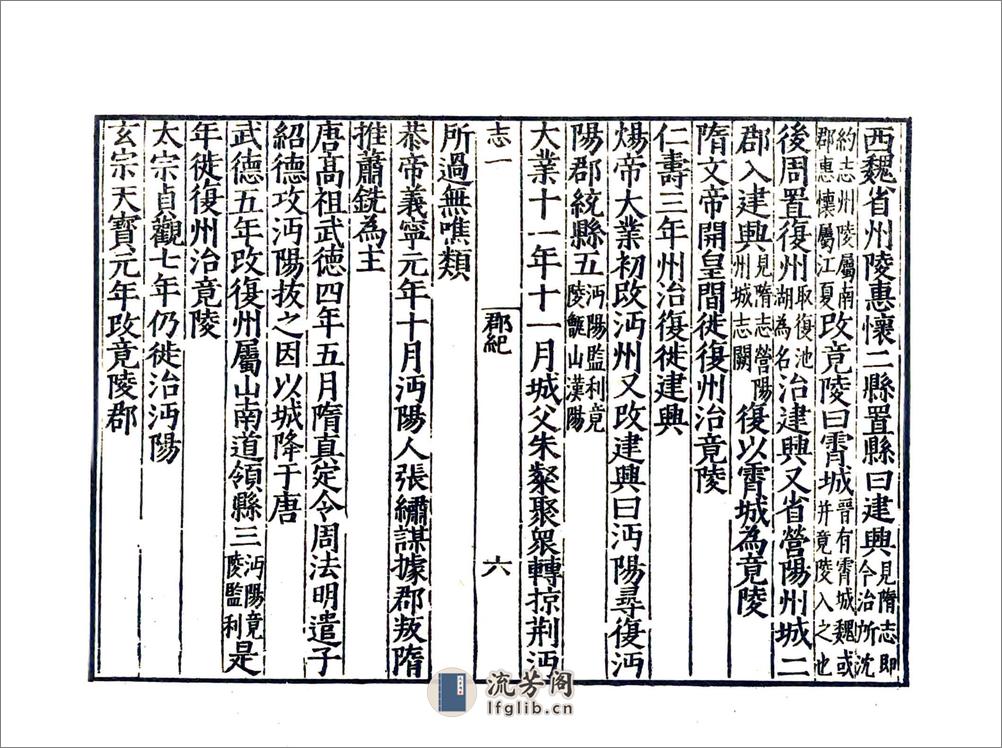 西魏省州陵惠懷二縣置縣曰建興見隋志即今治所沈
約志州陵屬南郡惠懷屬江夏改竟陵曰霄城晉有霄城魏或并竟陵入之也
後周置復州取復池湖為名治建興又省營陽州城二
郡入建興見隋志營陽州城志闕復以霄城為竟陵
隋文帝開皇間徙復州治竟陵
仁壽三年州治復徙建興
煬帝大業初改沔州又改建興曰沔陽尋復沔
陽郡統縣五沔陽監利竟陵甑山漢陽
大業十一年十一月城父朱粲聚眾轉掠荆沔
志一 郡紀 六
所過無噍類
恭帝義寧元年十月沔陽人張繡謀據郡叛隋
推蕭銑為王
唐髙祖武德四年五月隋真定令周法明遣子
紹德攻沔陽拔之因以城降于唐
武德五年改復州屬山南道領縣三沔陽竟陵監利是
年徙復州治竟陵
太宗貞觀七年仍徙治沔陽
玄宗天寶元年改竟陵郡
流芳阁
lfglib.cn